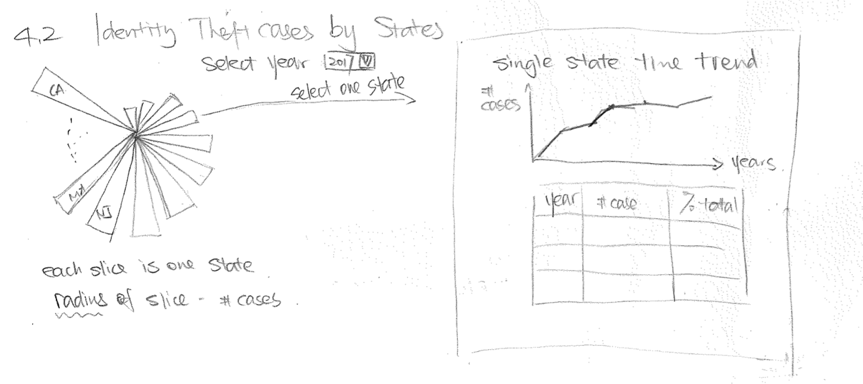 4.2 Identity Theft cases by States
Select Year 2017
select one state
CA
MA
NJ
each slice is one state.
radius of slice - # cases.
single state time trend
# cases
years
year # case % total